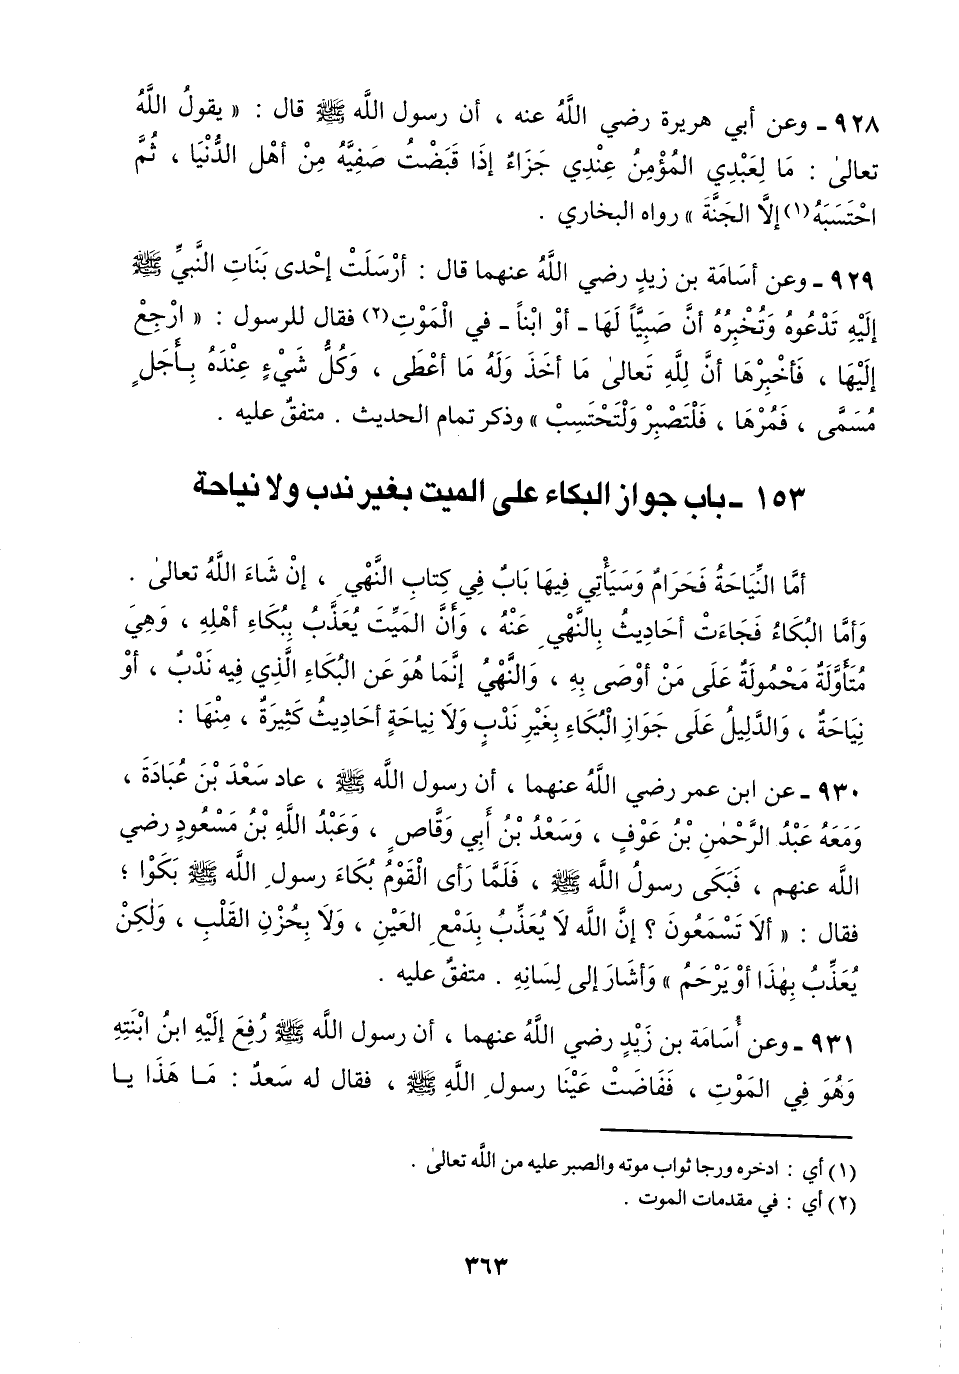 ٩٢٨ ـ وعن أبي هريرة رضي اللَّهُ عنه ، أن رسول اللَّه ﷺ قال : « يقولُ اللَّهُ
تعالىٰ : مَا لِعَبْدِي المُؤْمِنُ عِنْدِي جَزَاءٌ إذَا قَبَضْتُ صَفِيَّهُ مِنْ أهْلِ الدُّنْيَا ، ثُمَّ
احْتَسَبَهُ(١) إلَّا الجَنَّةَ » رواه البخاري .
٩٢٩ ـ وعن أسَامَة بن زيدٍ رضي اللَّهُ عنهما قال : أرْسَلَتْ إحْدى بَنَاتِ النَّبيِّ ﷺ
إلَيْهِ تَدْعُوهُ وَتُخْبِرُهُ أنَّ صَبِيَّاً لَهَا ـ أوْ ابْناً ـ في الْمَوْتِ(٢) فقال للرسول : « ارْجِعْ
إلَيْهَا ، فَأخْبِرْهَا أنَّ لِلَّهِ تَعالىٰ مَا أخَذَ وَلَهُ مَا أعْطَى ، وَكُلُّ شَيْءٍ عِنْدَهُ بِأَجَلٍ
مُسَمَّى ، فَمُرْهَا ، فَلْتَصْبِرْ وَلْتَحْتَسِبْ » وذكر تمام الحديث . متفقٌ عليه .
١٥٣ ـ باب جواز البكاء على الميت بغير ندب ولا نياحة
أمَّا النِّيَاحَةُ فَحَرَامٌ وَسَيَأْتِي فِيهَا بَابٌ فِي كِتابِ النَّهْيِ ، إنْ شَاءَ اللَّهُ تعالىٰ .
وَأمَّا البُكَاءُ فَجَاءَتْ أحَادِيثُ بِالنَّهْيِ عَنْهُ ، وَأَنَّ المَيِّتَ يُعَذَّبُ بِبُكَاءِ أهْلِهِ ، وَهِيَ
مُتَأَوَّلَةٌ مَحْمُولَةٌ عَلَى مَنْ أوْصَى بِهِ ، وَالنَّهْيُ إنَّمَا هُوَ عَن البُكَاءِ الَّذِي فِيه نَدْبٌ ، أوْ
نِيَاحَةٌ ، وَالدَّلِيلُ عَلَى جَوَازِ الْبُكَاءِ بِغَيْرِ نَدْبٍ وَلَا نِياحَةٍ أحَادِيثُ كَثِيرَةٌ ، مِنْهَا :
٩٣٠ ـ عن ابن عمر رضي اللَّهُ عنهما ، أن رسول اللَّه ﷺ ، عاد سَعْدَ بْنَ عُبَادَةَ ،
وَمَعَهُ عَبْدُ الرَّحْمٰنِ بْنُ عَوْفٍ ، وَسَعْدُ بْنُ أبي وَقَّاصٍ ، وَعَبْدُ اللَّهِ بْنُ مَسْعُودٍ رضي
اللَّه عنهم ، فَبَكَى رسولُ اللَّه ﷺ ، فَلَمَّا رَأى الْقَوْمُ بُكَاءَ رسولِ اللَّه ﷺ بَكَوْا ؛
فقال : « ألَا تَسْمَعُونَ ؟ إنَّ اللَّه لَا يُعَذِّبُ بِدَمْعِ العَيْنِ ، وَلَا بِحُزْنِ القَلْبِ ، وَلٰكِنْ
يُعَذِّبُ بِهٰذَا أوْ يَرْحَمُ » وَأشَارَ إلى لِسَانِهِ . متفقٌ عليه .
٩٣١ ـ وعن أُسَامَة بن زَيْدٍ رضي اللَّهُ عنهما ، أن رسول اللَّه ﷺ رُفِعَ إلَيْهِ ابنُ ابْنَتِهِ
وَهُوَ فِي المَوْتِ ، فَفَاضَتْ عَيْنَا رسولِ اللَّهِ ﷺ ، فقال له سَعدٌ : مَا هَذَا يَا
(١) أي : ادخره ورجا ثواب موته والصبر عليه من اللَّه تعالىٰ .
(٢) أي : في مقدمات الموت .
٣٦٣